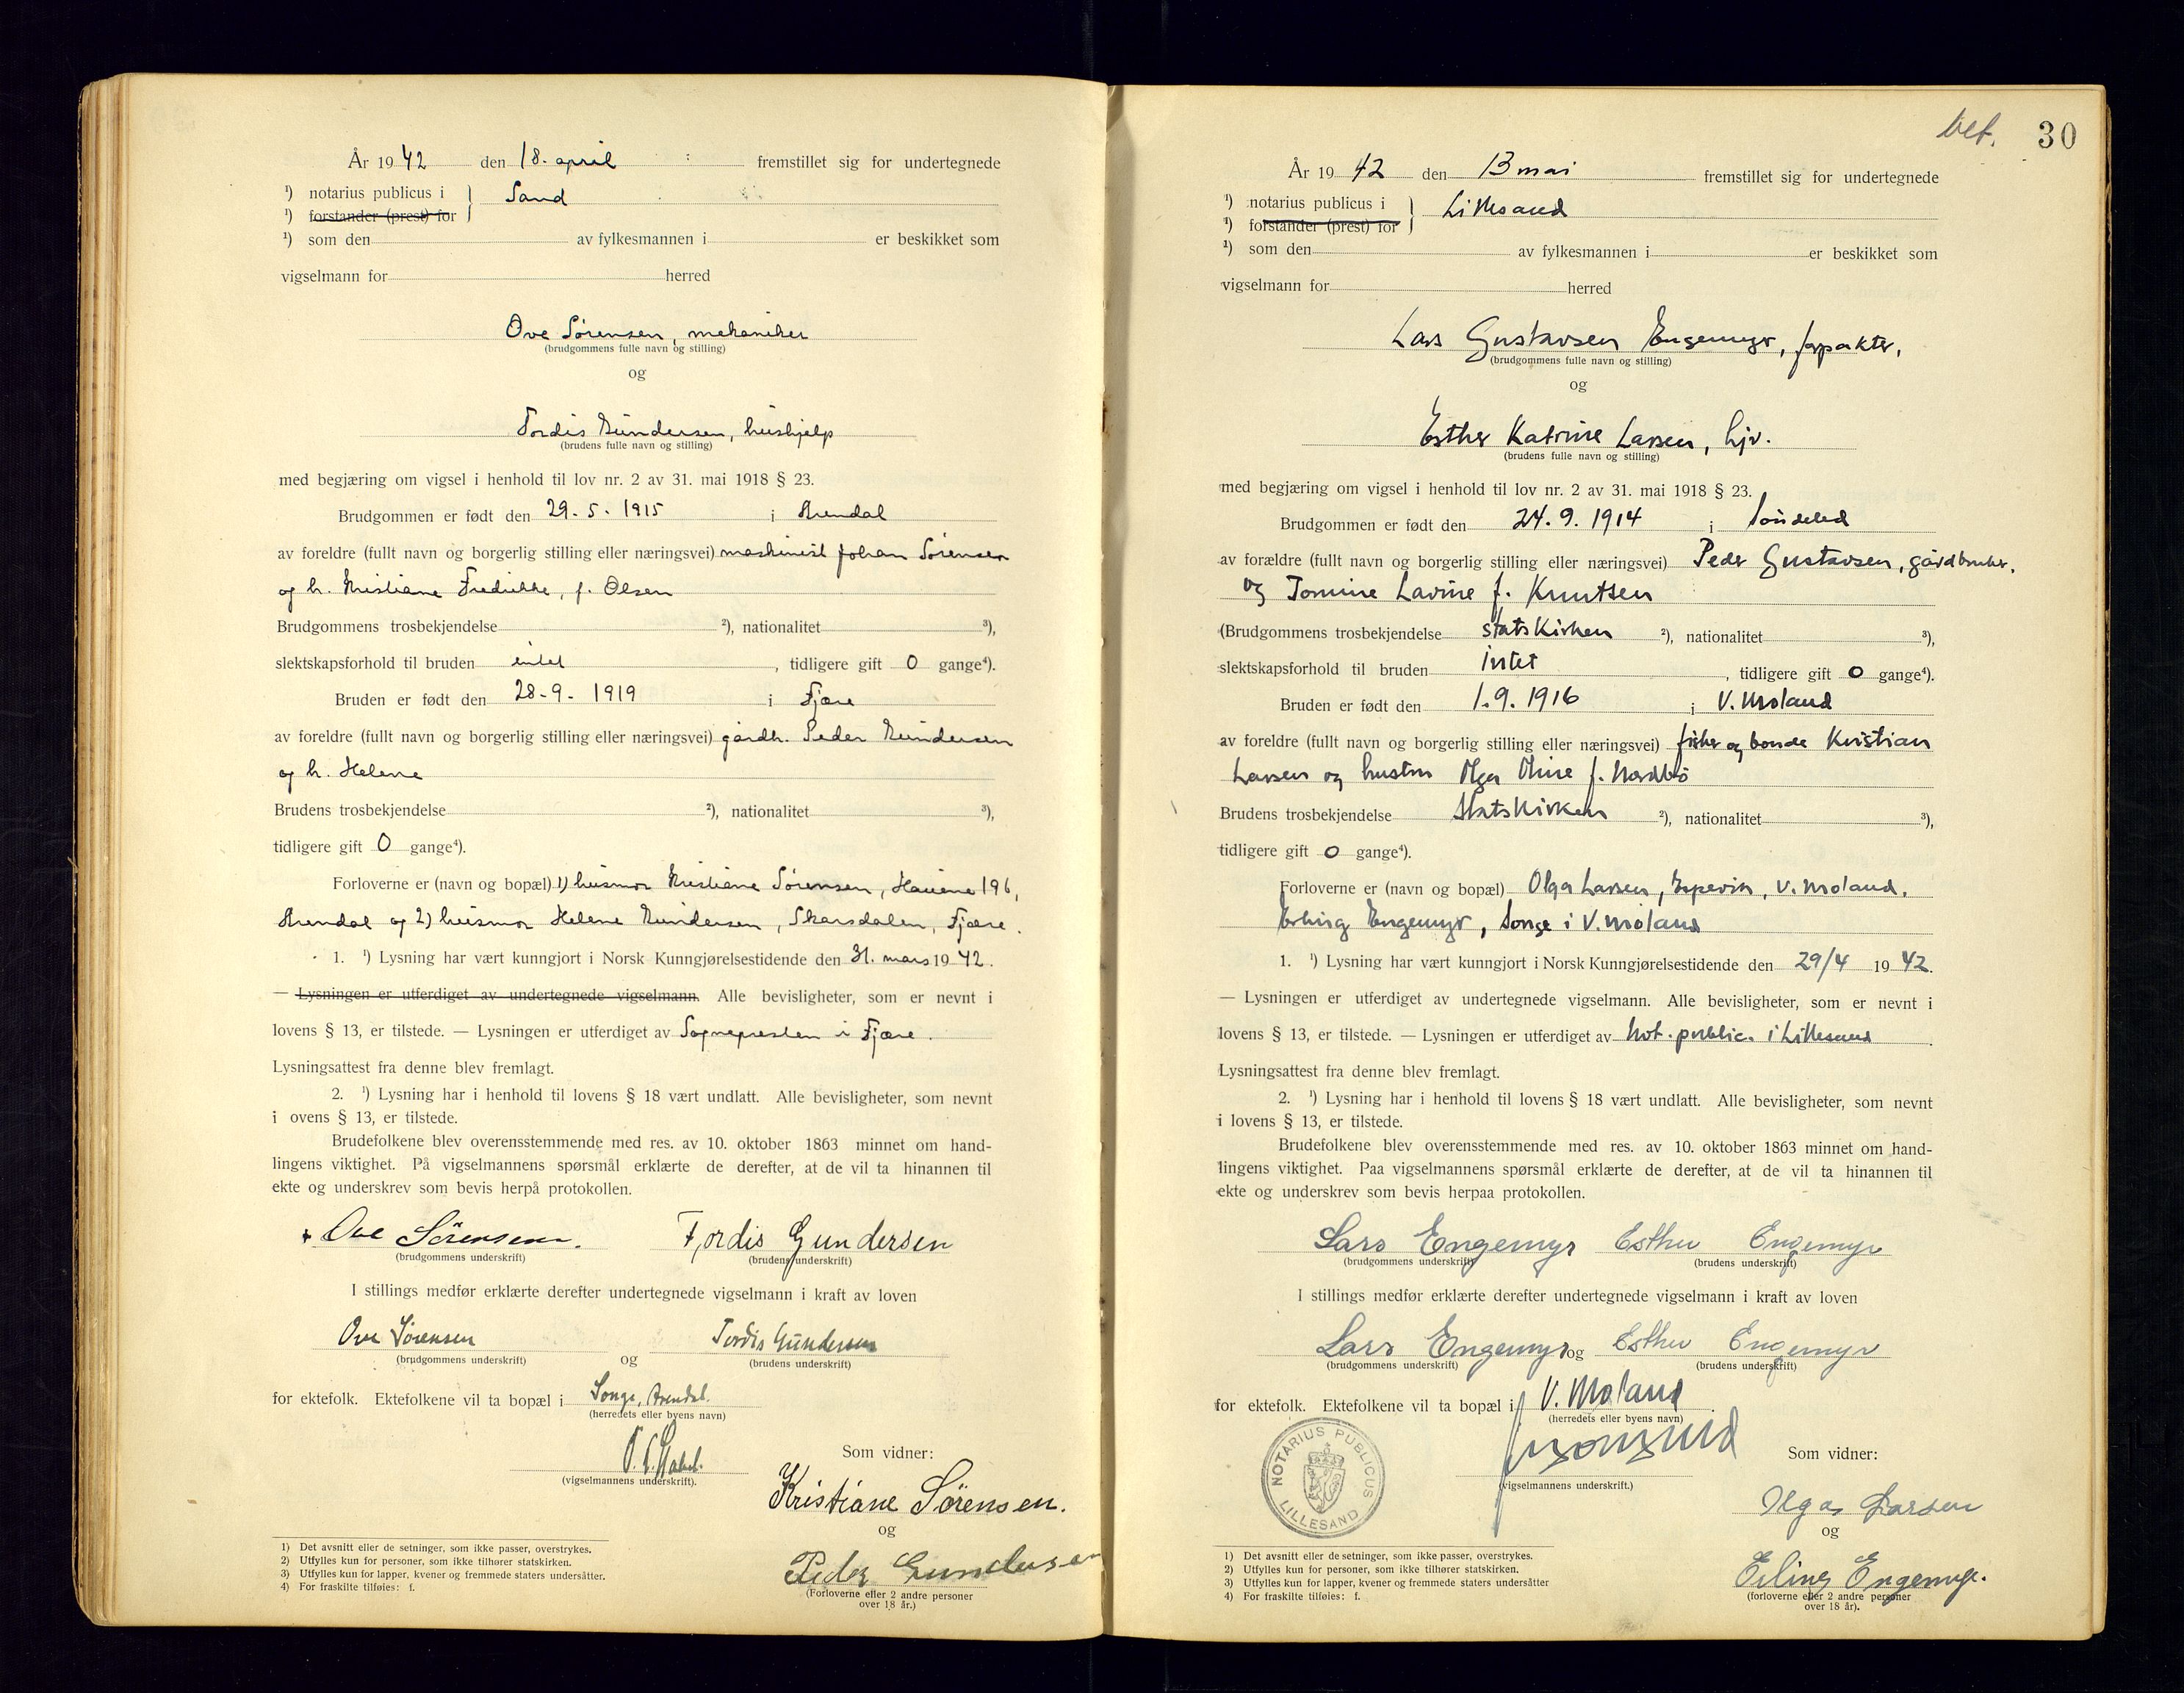 År 1942 den 18. april fremstillet sig for undertegnede
¹) notarius publicus i } Sand
¹) forstander (prest) for
¹) som den av fylkesmannen i er beskikket som
vigselmann for herred
Ove Sörensen, mekaniker
(brudgommens fulle navn og stilling)
og
Tordis Gundersen, hushjelp
(brudens fulle navn og stilling)
med begjæring om vigsel i henhold til lov nr. 2 av 31. mai 1918 § 23.
Brudgommen er født den 29-5-1915 i Arendal
av foreldre (fullt navn og borgerlig stilling eller næringsvei) maskinist Johan Sörensen
og h. Kristiane Fredrikke, f. Olsen
Brudgommens trosbekjendelse ²), nationalitet ³),
slektskapsforhold til bruden intet, tidligere gift 0 gange⁴).
Bruden er født den 28-9-1919 i Fjære
av foreldre (fullt navn og borgerlig stilling eller næringsvei) gårdb. Peder Gundersen
og h. Helene
Brudens trosbekjendelse ²), nationalitet ³),
tidligere gift 0 gange⁴).
Forloverne er (navn og bopæl) 1) husmor Kristiane Sörensen, Hauene 196,
Arendal og 2) husmor Helene Gundersen, Skarsdalen, Fjære.
1. ¹) Lysning har vært kunngjort i Norsk Kunngjørelsestidende den 31. mars 1942.
— Lysningen er utferdiget av undertegnede vigselmann. Alle bevisligheter, som er nevnt i
lovens § 13, er tilstede. — Lysningen er utferdiget av Sognepresten i Fjære.
Lysningsattest fra denne blev fremlagt.
2. ¹) Lysning har i henhold til lovens § 18 vært undlatt. Alle bevisligheter, som nevnt
i ovens § 13, er tilstede.
Brudefolkene blev overensstemmende med res. av 10. oktober 1863 minnet om hand-
lingens viktighet. På vigselmannens spørsmål erklærte de derefter, at de vil ta hinannen til
ekte og underskrev som bevis herpå protokollen.
Ove Sörensen. Tordis Gundersen
(brudgommens underskrift) (brudens underskrift)
I stillings medfør erklærte derefter undertegnede vigselmann i kraft av loven
Ove Sörensen og Tordis Gundersen
(brudgommens underskrift) (brudens underskrift)
for ektefolk. Ektefolkene vil ta bopæl i Songe, Arendal.
(herredets eller byens navn)
(vigselmannens underskrift).
Som vidner:
Kristiane Sörensen.
og
Peder Gundersen
(Forloverne eller 2 andre personer
over 18 år.)
1) Det avsnitt eller de setninger, som ikke passer, overstrykes.
2) Utfylles kun for personer, som ikke tilhører statskirken.
3) Utfylles kun for lapper, kvener og fremmede staters undersåtter.
4) For fraskilte tilføies: f.
bet. 30
År 1942 den 13 mai fremstillet sig for undertegnede
¹) notarius publicus i } Lillesand
¹) forstander (prest) for
¹) som den av fylkesmannen i er beskikket som
vigselmann for herred
Lars Gustavsen Engemyr, forpakter,
(brudgommens fulle navn og stilling)
og
Esther Katrine Larsen, hjv.
(brudens fulle navn og stilling)
med begjæring om vigsel i henhold til lov nr. 2 av 31. mai 1918 § 23.
Brudgommen er født den 24.9.1914 i Söndeled
av forældre (fullt navn og borgerlig stilling eller næringsvei) Peder Gustavsen, gårdbruker,
og Tomine Lavine f. Knutsen
(Brudgommens trosbekjendelse statskirken ²), nationalitet ³),
slektskapsforhold til bruden intet, tidligere gift 0 gange⁴).
Bruden er født den 1.9.1916 i V. Moland
av foreldre (fullt navn og borgerlig stilling eller næringsvei) fisker og bonde Kristian
Larsen og hustru Olga Oline f. Nordbö
Brudens trosbekjendelse Statskirken ²), nationalitet ³),
tidligere gift 0 gange⁴).
Forloverne er (navn og bopæl) Olga Larsen, Espevik, V. Moland.
Erling Engemyr, Songe i V. Moland
1. ¹) Lysning har vært kunngjort i Norsk Kunngjørelsestidende den 29/4 1942.
— Lysningen er utferdiget av undertegnede vigselmann. Alle bevisligheter, som er nevnt i
lovens § 13, er tilstede. — Lysningen er utferdiget av Not. public. i Lillesand.
Lysningsattest fra denne blev fremlagt.
2. ¹) Lysning har i henhold til lovens § 18 vært undlatt. Alle bevisligheter, som nevnt
i lovens § 13, er tilstede.
Brudefolkene blev overensstemmende med res. av 10. oktober 1863 minnet om hand-
lingens viktighet. Paa vigselmannens spørsmål erklærte de derefter, at de vil ta hinannen til
ekte og underskrev som bevis herpaa protokollen.
Lars Engemyr Esther Engemyr
(brudgommens underskrift) (brudens underskrift)
I stillings medfør erklærte derefter undertegnede vigselmann i kraft av loven
Lars Engemyr og Esther Engemyr
(brudgommens underskrift) (brudens underskrift)
for ektefolk. Ektefolkene vil ta bopæl i V. Moland.
(herredets eller byens navn)
NOTARIUS PUBLICUS LILLESAND
(vigselmannens underskrift.)
Som vidner:
Olga Larsen
og
Erling Engemyr.
(forloverne eller 2 andre personer
over 18 år).
1) Det avsnitt eller de setninger, som ikke passer, overstrykes.
2) Utfylles kun for personer, som ikke tilhører statskirken.
3) Utfylles kun for lapper, kvener og fremmede staters undersåtter
4) For fraskilte tilføies: f.